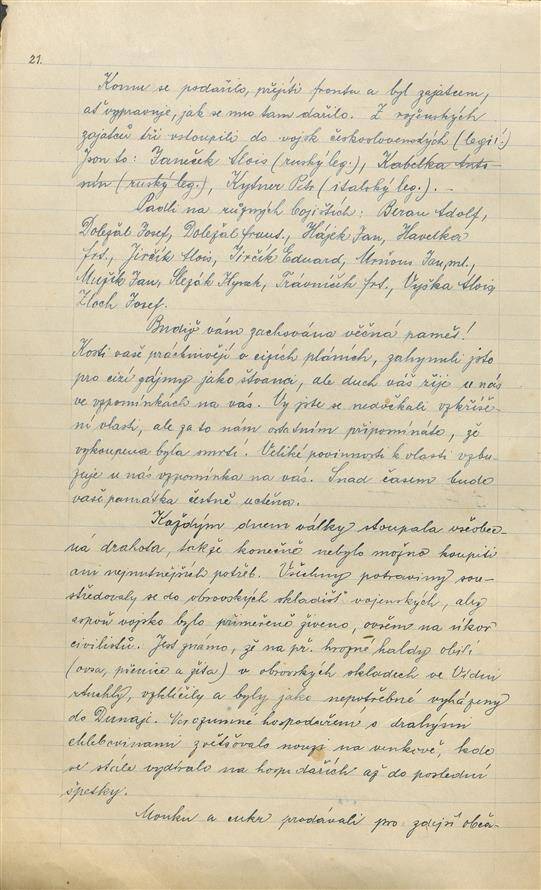 21.
Komu se podařilo, přejíti frontu a byl zajatcem,
ať vypravuje, jak se mu tam dařilo. Z
zajatců tři vstoupili do vojsk československých (legií.)
Jsou to: Janíček Alois (ruský leg.), Kabelka Anto-
nín (ruský leg.), Kytner Petr (italský leg.). –
Padli na různých bojištích: Beran Adolf,
Doležal Josef, Doležal frant., Hájek Jan, Havelka
frt., Jirčík Alois, Jirčík Eduard, Jan, ml.,
Mužík Jan, Slezák Hynek, Trávníček frt., Vyška Alois
Zloch Josef.
Budiž vám zachována věčná paměť!
Kosti vaše práchnivějí v cizích pláních, zahynuli jste
pro cizí zájmy jako štvanci, ale duch váš žije u nás
ve vzpomínkách na vás. Vy jste se nedočkali vzkříše-
ní vlasti, ale za to nám ostatním připomínáte, že
vykoupena byla smrtí. Veliké povinnosti k vlasti vzbu-
zuje u nás vzpomínka na vás. Snad časem bude
vaše památka čestně uctěna.
Každým dnem války stoupala všeobec-
ná drahota, takže konečně nebylo možno koupiti
ani nejnutnějších potřeb. Všechny potraviny sou-
středovaly se do obrovských skladišť vojenských, aby
aspoň vojsko bylo přiměřeně živeno, ovšem na úkor
civilistů. Jest známo, že na př. hrozné haldy obilí
(ovsa, pšenice a žita) v obrovských skladech ve Vídni
ztuchly, vzklíčily a byly jako nepotřebné vyházeny
do Dunaje. Nerozumné hospodaření s drahými
chlebovinami zvětšovalo nouzi na venkově, kde
se stále vydíralo na hospodářích až do poslední
špetky.
Mouku a cukr prodávali pro zdejší obča-